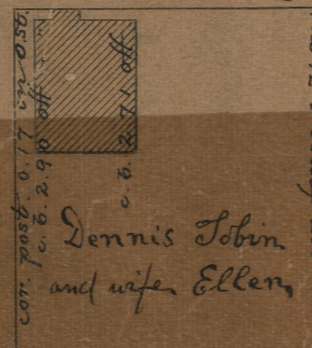 cor. post. 0.17 in O.St.
c.b. 2.90 off
c.b. 2.71 off
Dennis Tobin
and wife Ellen,